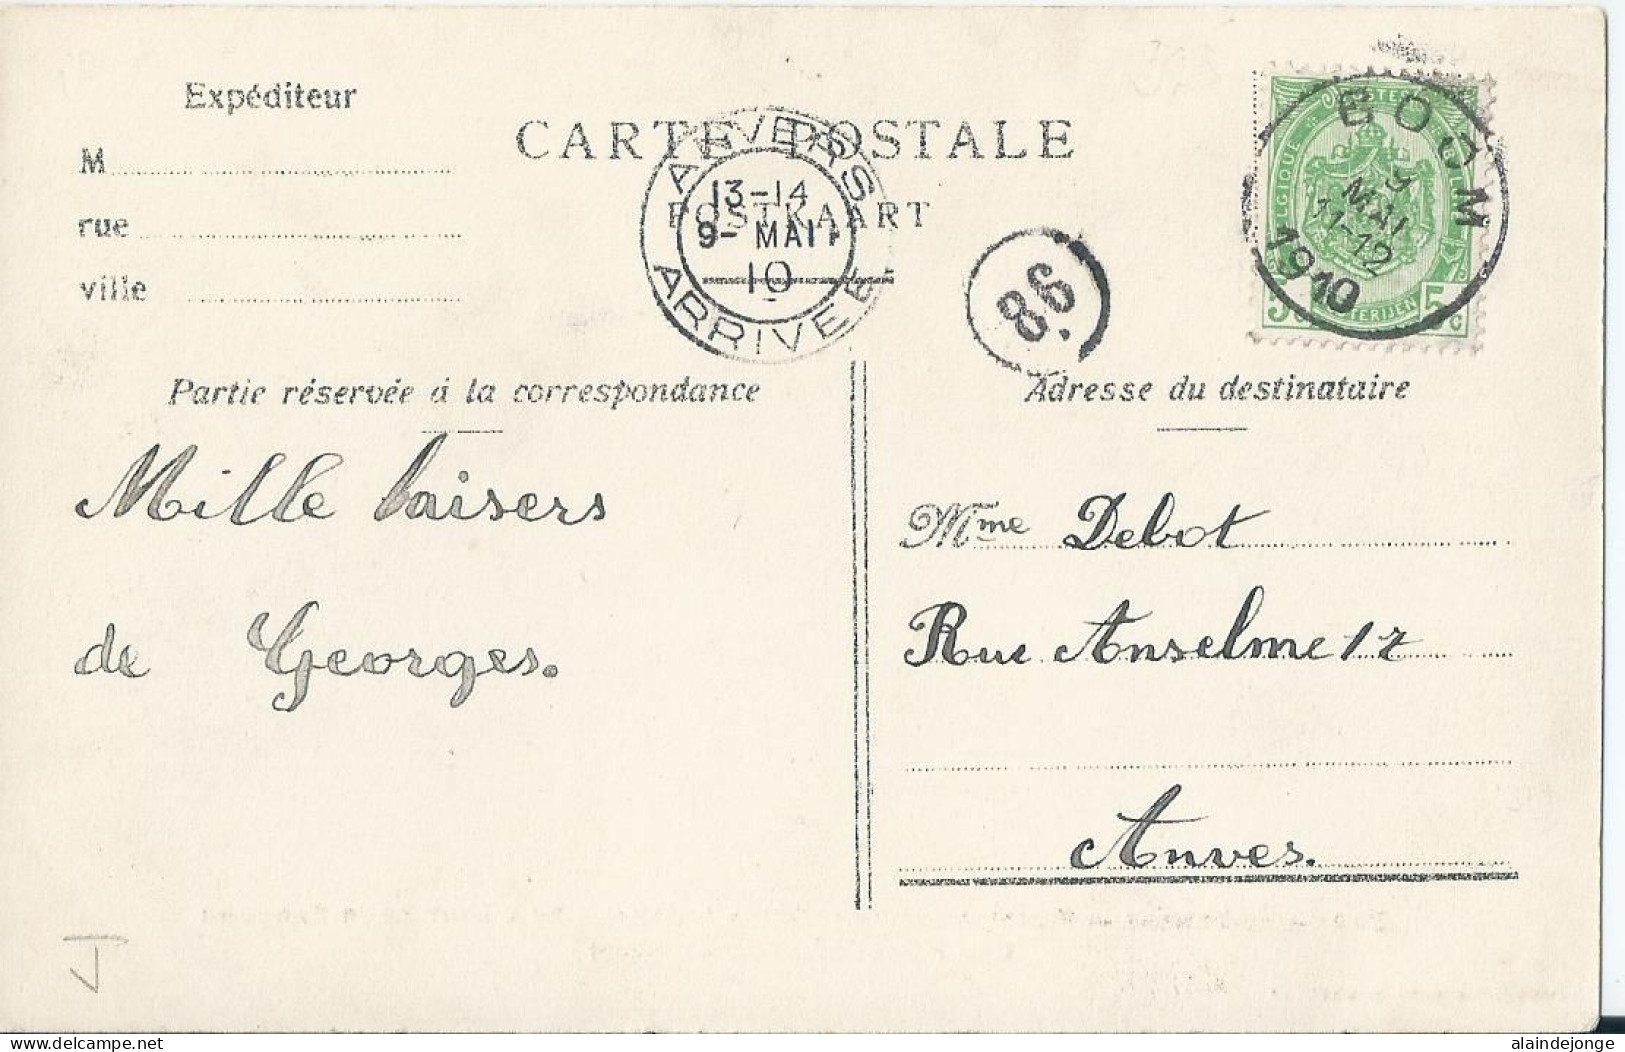 Expéditeur
M
rue
ville
CARTE POSTALE
POSTKAART
ANVERS
13-14
9- MAI
10
ARRIVEE
86
BOOM
9
MAI
11-12
1910
BELGIQUE
5
5c
Partie réservée à la correspondance
Adresse du destinataire
Mille baisers
de Georges.
Mme Debot
Rue Anselme 17
Anves.
delcampe.net
alaindejonge